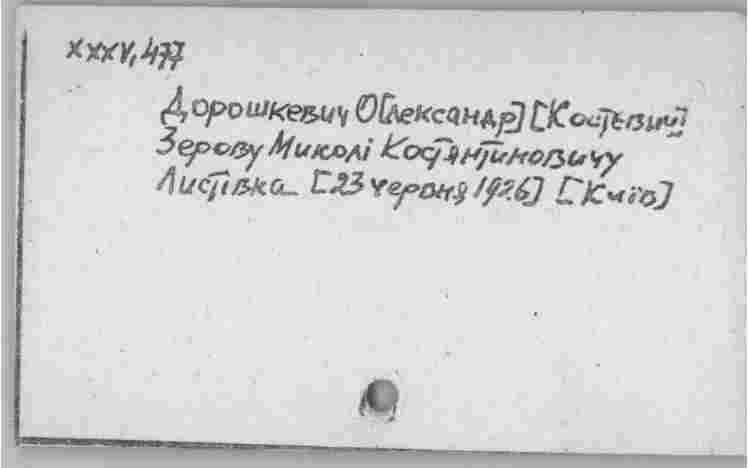 XXXV, 477
Дорошкевич О[лександр] [Костєвич]
Зерову Миколі Костянтиновичу
Листівка [23 червня 1926] [Київ]